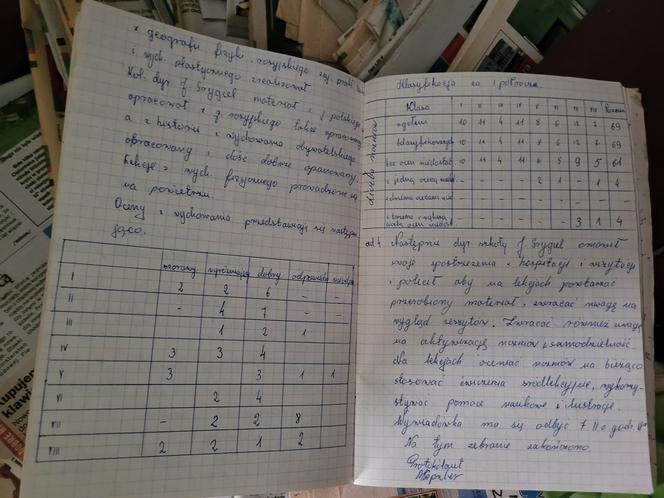 z geografii fizyki, rosyjskiego zaj. prakt.
i wych. plastycznego zrealizował.
Kol. dyr. J. Szygiel materiał z j. polskiego
opracował z j. rosyjskiego także opracował
a z historii i wychowania obywatelskiego
opracowany i dość dobrze opanowany.
Lekcje z wych. fizycznego prowadzone są
na powietrzu.
Oceny z wychowania przedstawiają się następu
jąco.
wzorowy wyróżniający dobry odpowiedni
I 2 2 6 - -
II - 4 7 - -
III 1 2 1
IV 3 3 4
V 3 3 1 1
VI 2 4
VII - 2 2 8
VIII 2 2 1 2
Klasyfikacja za I półrocze.
Klasa I II III IV V VI VII VIII Razem
liczba uczniów
ogółem 10 11 4 11 8 6 12 7 69
klasyfikowanych 10 11 4 11 8 6 12 7 69
bez ocen niedostat. 10 11 4 11 6 5 9 5 61
z jedną oceną niedost. - - - - 2 1 - 1 4
z dwiema ocenami nied. - - - - - - - - -
z trzema i większą ilością ocen niedost. - - - - - - 3 1 4
ad 4. Następnie dyr. szkoły J. Szygiel omówił
swoje spostrzeżenia z hospitacji i wizytacji
i polecił aby na lekcjach powtarzać
przerobiony materiał, zwracać uwagę na
wygląd zeszytów. Zwracać również uwagę
na aktywizację uczniów, samodzielność.
Na lekcjach oceniać uczniów na bieżąco
stosować ćwiczenia śródlekcyjne, wykorzy-
stywać pomoce naukowe i ilustracje.
Wywiadówka ma się odbyć 7.II o godz.
Na tym zebranie zakończono.
Protokołował
kupujem
klawi